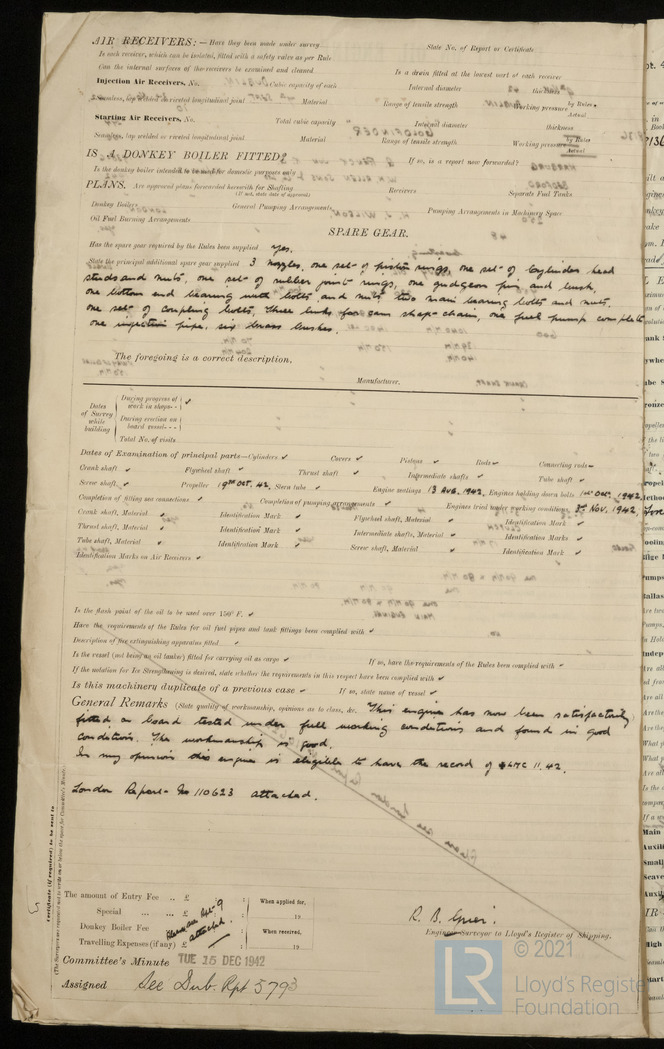 AIR RECEIVERS:— Have they been made under survey
State No. of Report or Certificate
Is each receiver, which can be isolated, fitted with a safety valve as per Rule
Can the internal surfaces of the receivers be examined and cleaned
Is a drain fitted at the lowest part of each receiver
Injection Air Receivers, No. Cubic capacity of each Internal diameter thickness
Seamless, lap welded or riveted longitudinal joint Material Range of tensile strength Working pressure by Rules Actual
Starting Air Receivers, No. Total cubic capacity Internal diameter thickness
Seamless, lap welded or riveted longitudinal joint Material Range of tensile strength Working pressure by Rules Actual
IS A DONKEY BOILER FITTED? If so, is a report now forwarded?
Is the donkey boiler intended to be used for domestic purposes only
PLANS. Are approved plans forwarded herewith for Shafting Receivers Separate Fuel Tanks
(If not, state date of approval)
Donkey Boilers General Pumping Arrangements Pumping Arrangements in Machinery Space
Oil Fuel Burning Arrangements
SPARE GEAR.
Has the spare gear required by the Rules been supplied yes.
State the principal additional spare gear supplied 3 nozzles, one set of piston rings, one set of cylinder head
studs and nuts, one set of rubber joint rings, one gudgeon pin and bush,
one bottom end bearing with bolts, and nuts two main bearing bolts and nuts,
one set of coupling bolts, three links for cam shaft chain, one fuel pump complete
one injection pipe, six brass bushes.
The foregoing is a correct description.
Manufacturer.
Dates of Survey while building
During progress of work in shops - - ✓
During erection on board vessel - - -
Total No. of visits
Dates of Examination of principal parts—Cylinders ✓ Covers ✓ Pistons ✓ Rods ✓ Connecting rods ✓
Crank shaft ✓ Flywheel shaft ✓ Thrust shaft ✓ Intermediate shafts ✓ Tube shaft ✓
Screw shaft ✓ Propeller 19th OCT. 42. Stern tube ✓ Engine seatings 13 AUG. 1942. Engines holding down bolts 1st Oct. 1942.
Completion of fitting sea connections ✓ Completion of pumping arrangements ✓ Engines tried under working conditions 3rd NOV. 1942.
Crank shaft, Material ✓ Identification Mark ✓ Flywheel shaft, Material ✓ Identification Mark ✓
Thrust shaft, Material ✓ Identification Mark ✓ Intermediate shafts, Material ✓ Identification Marks ✓
Tube shaft, Material ✓ Identification Mark ✓ Screw shaft, Material ✓ Identification Mark ✓
Identification Marks on Air Receivers ✓
Is the flash point of the oil to be used over 150° F. ✓
Have the requirements of the Rules for oil fuel pipes and tank fittings been complied with ✓
Description of fire extinguishing apparatus fitted ✓
Is the vessel (not being an oil tanker) fitted for carrying oil as cargo ✓ If so, have the requirements of the Rules been complied with ✓
If the notation for Ice Strengthening is desired, state whether the requirements in this respect have been complied with ✓
Is this machinery duplicate of a previous case ✓ If so, state name of vessel ✓
General Remarks (State quality of workmanship, opinions as to class, &c. This engine has now been satisfactorily
fitted on board tested under full working conditions and found in good
condition. The workmanship is good.
In my opinion this engine is eligible to have the record of LMC 11.42.
London Report No 110623 attached.
Certificate (if required) to be sent to
(The Surveyors are requested not to write on or below the space for Committee's Minute)
The amount of Entry Fee .. £ : : When applied for,
Special ... ... £ : : 19
Donkey Boiler Fee When received,
Travelling Expenses (if any) £ : : 19
attached.
Engineer Surveyor to Lloyd's Register of Shipping.
Committee's Minute TUE 15 DEC 1942
Assigned See Sub. Rpt 5793
LR
© 2021
Lloyd's Register
Foundation